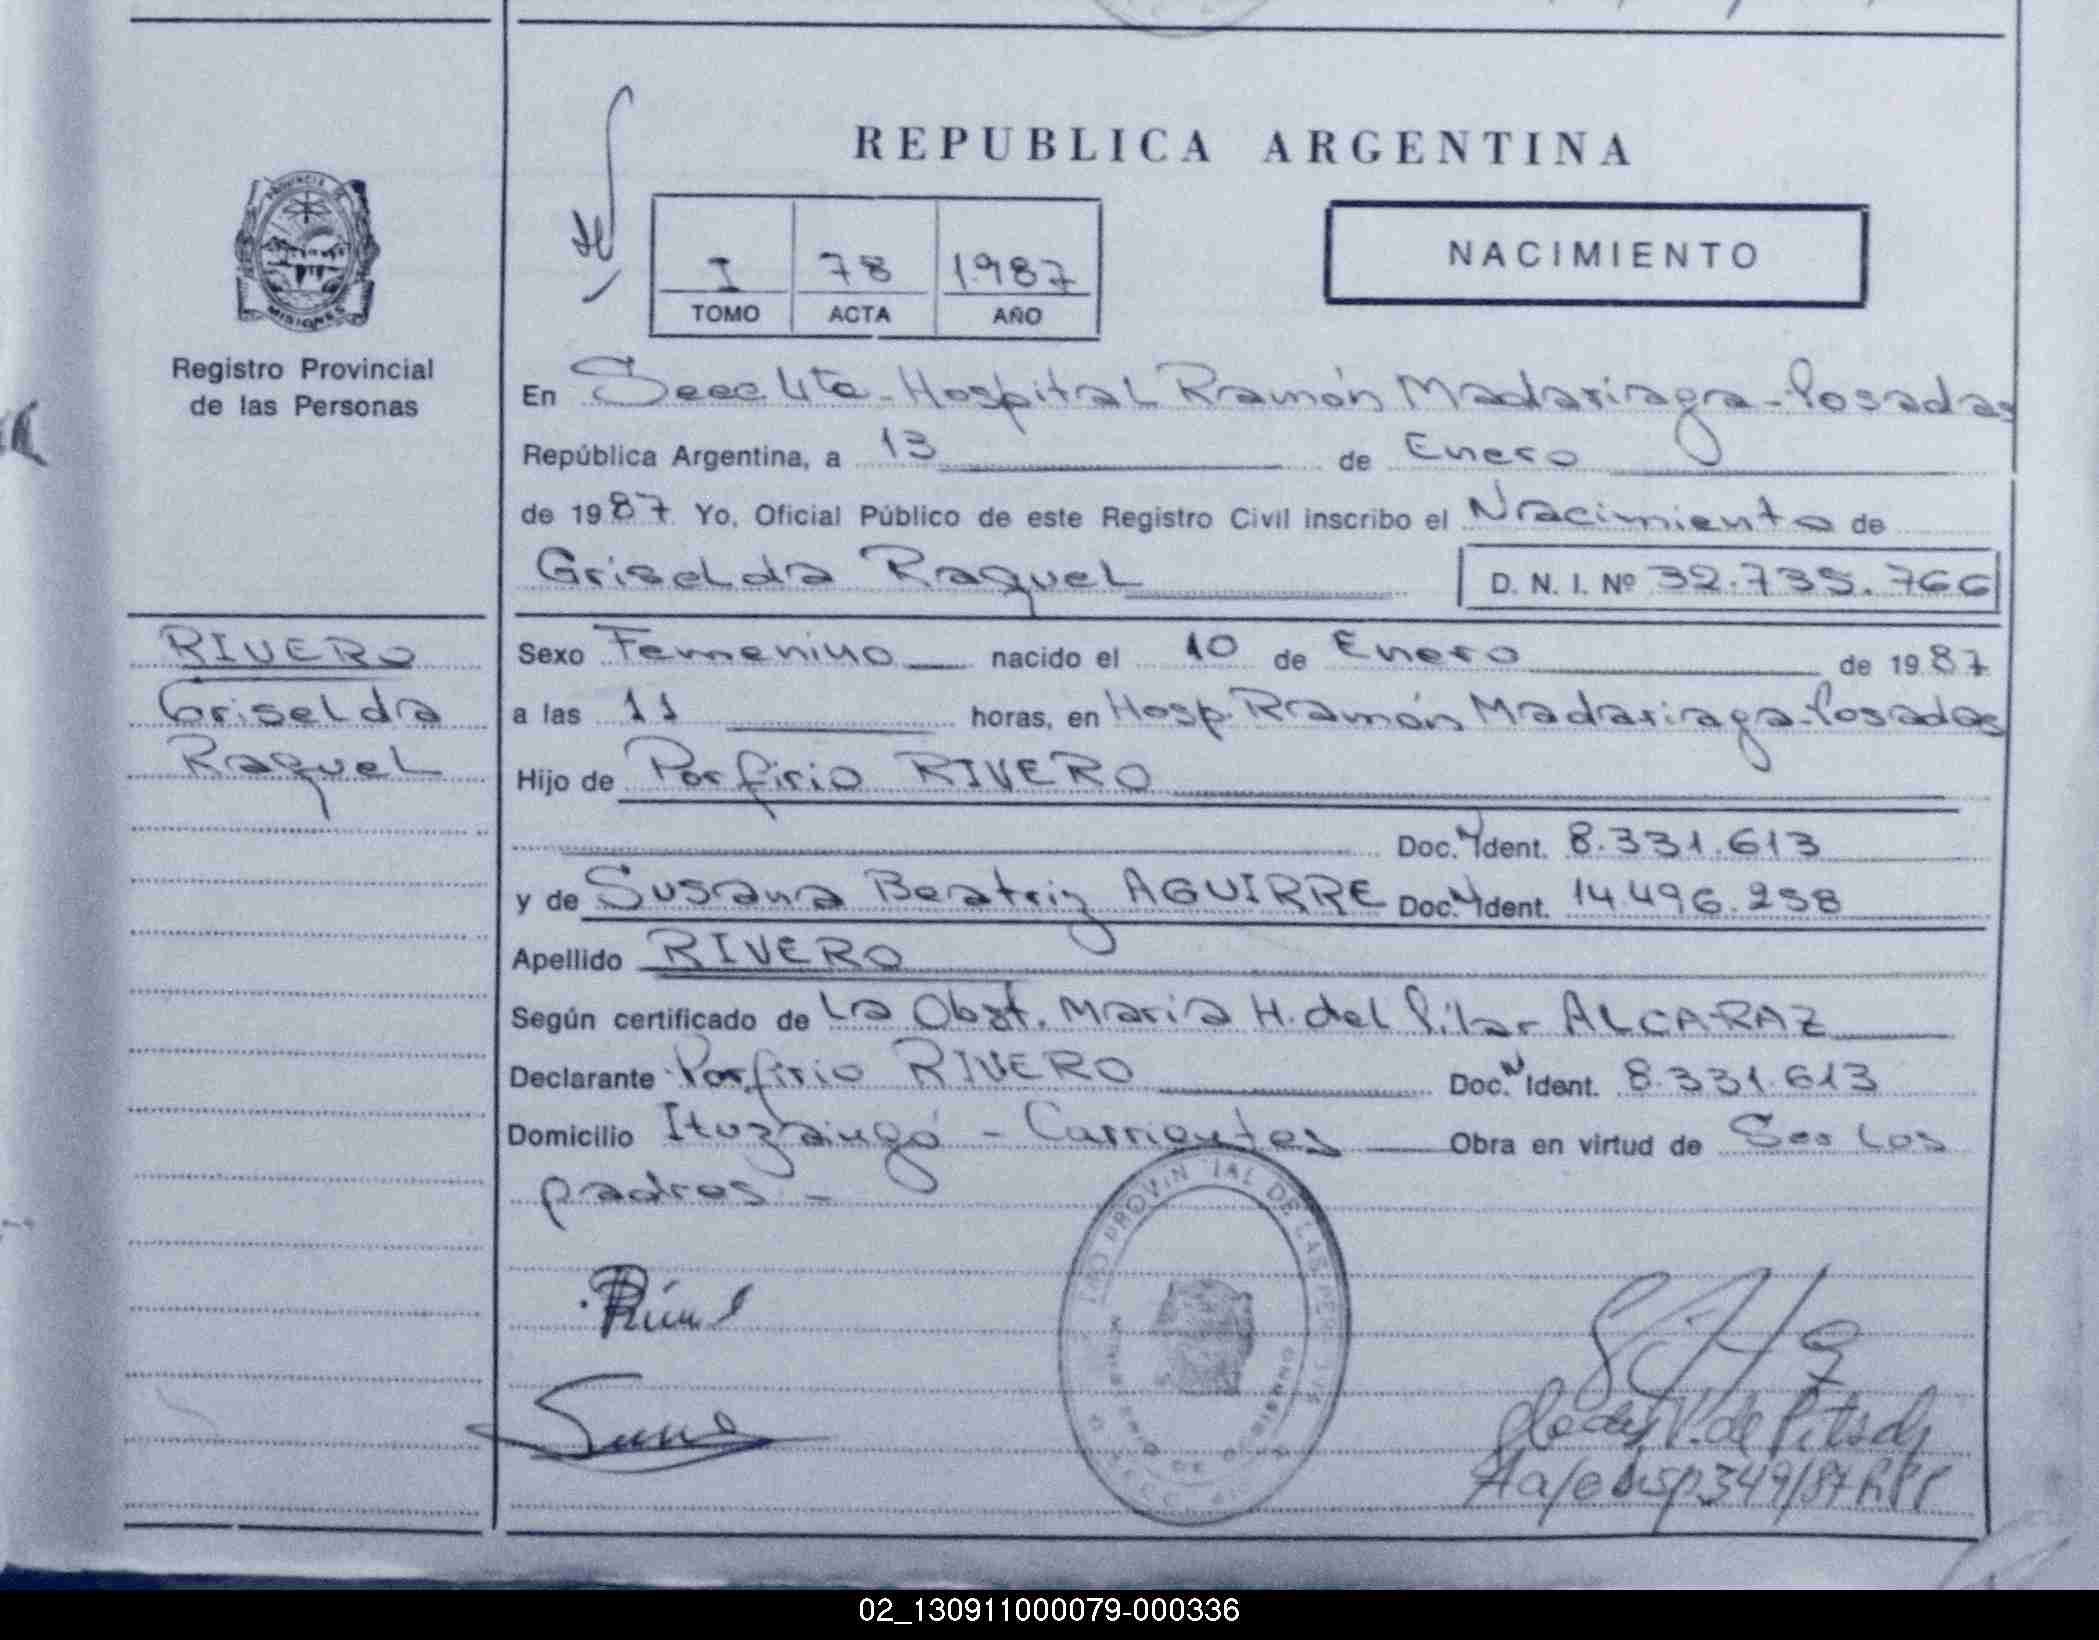 REPUBLICA ARGENTINA
I 78 1.987
TOMO ACTA AÑO
NACIMIENTO
PROVINCIA DE
MISIONES
Registro Provincial
de las Personas
En Secc 4ta - Hospital Ramón Madariaga - Posadas
República Argentina, a 13 de Enero
de 1987 Yo, Oficial Público de este Registro Civil inscribo el Nacimiento de
Griselda Raquel D. N. I. Nº 32.735.766
RIVERO
Griselda
Raquel
Sexo Femenino nacido el 10 de Enero de 1987
a las 11 horas, en Hosp. Ramón Madariaga - Posadas
Hijo de Porfirio RIVERO
Doc. Ident. 8.331.613
y de Susana Beatriz AGUIRRE Doc. Ident. 14.496.258
Apellido RIVERO
Según certificado de La Obst. Maria H. del Pilar ALCARAZ
Declarante Porfirio RIVERO Doc. Ident. 8.331.613
Domicilio Ituzaingó - Corrientes Obra en virtud de Ser los
padres -
PROVINCIAL DE LAS PER
V. de
Disp. 349/87
02_130911000079-000336